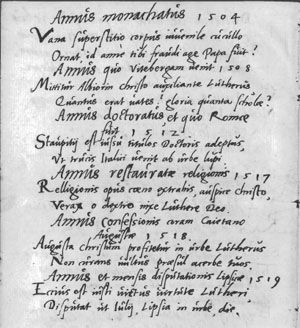 Annus monachatus 1504
Vana superstitio corpus iuvenile cucullo
Ornat, id amne tibi fraudi age Papa fuit?
Annus quo Vitebergam venit 1508
Mittitur Albiorim Christo auxiliante Lutherus
Quantus erat vates: gloria quanta scholæ?
Annus doctoratus et quo Romæ
fuit 1512.
Staupitij est iussu titulos Doctoris adeptus
Ut trucis Italici venit ab urbe lupi
Annus restauratæ religionis 1517
Relligionis opus cœno extrahis, auspice christo,
Verax o dextro mixe Luthere Deo
Annus confessionis coram Caietano
Augustæ 1518.
Augusta Christum profitetur in urbe Lutherus
Non curans vultus præsul acerbe tuos
Annus et mensis disputationis Lipsicæ 1519
Eccius est iusti victus virtute Lutheri
Disputat ut Iulij Lipsia in urbe die.